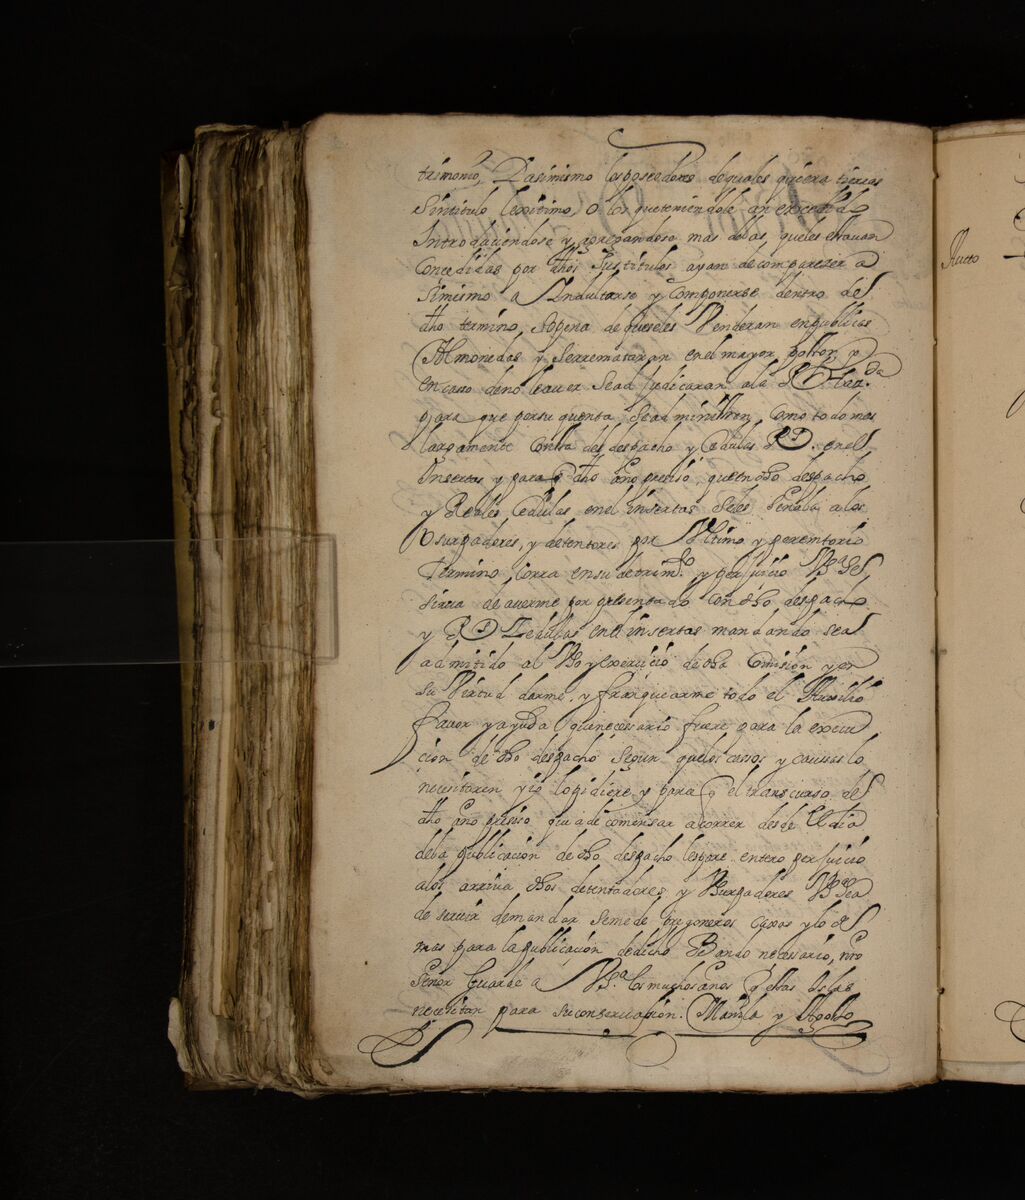 trimonio, Y asimismo los poseedores de quales quiera tierras
sin titulo lexitimo, o los que teniendole an excedido
introduciendose y agregandose mas de las que les estauan
concedidas por dhos sus titulos ayan de comparezer a
simismo a Yndultarse y componerse dentro del
dho termino, so pena de que se les Venderan en publicas
Almonedas y se rremataran en el mayor postor, y
en casso de no le auer se adjudicaran a la Rl Hazda
para que por su quenta se administren, como todo mas
largamente consta del despacho y Cedulas Rs. en el
Insertas y para q dho año presiso, que en dho despacho
y Reales Cedulas en el insertas se les señala a los
Vsurpadores, y detentores por Vltimo y peremtorio
termino, corra en su detrimto. y perjuicio Va Sa
sirua de auerme por presentado con dho despacho
y Rs Zedulas en el insertas mandando sea
admitido al Vso y exercicio de dha Comision y en
su Virtud darme, y franquearme todo el Auxilio
fauor y ayuda que necessario fuere para la execu
cion de dho despacho segun que los cassos y caussas lo
necesitaren y io lo pidiere, y para q el transcurso del
dho año presiso que a de comensar a correr desde el dia
de la publicacion de dho despacho les pare entero perjuicio
a los arriua dhos detentadores y Vsurpadores Va Sa
de seruir de mandar se me de pregoneros caxas y lo de
mas para la publicacion de dicho Bando necesario, nro
Señor Guarde a V. Sa. los muchos años q estas Islas
necesitan para su conseruasion. Manila y Agosto
Aucto